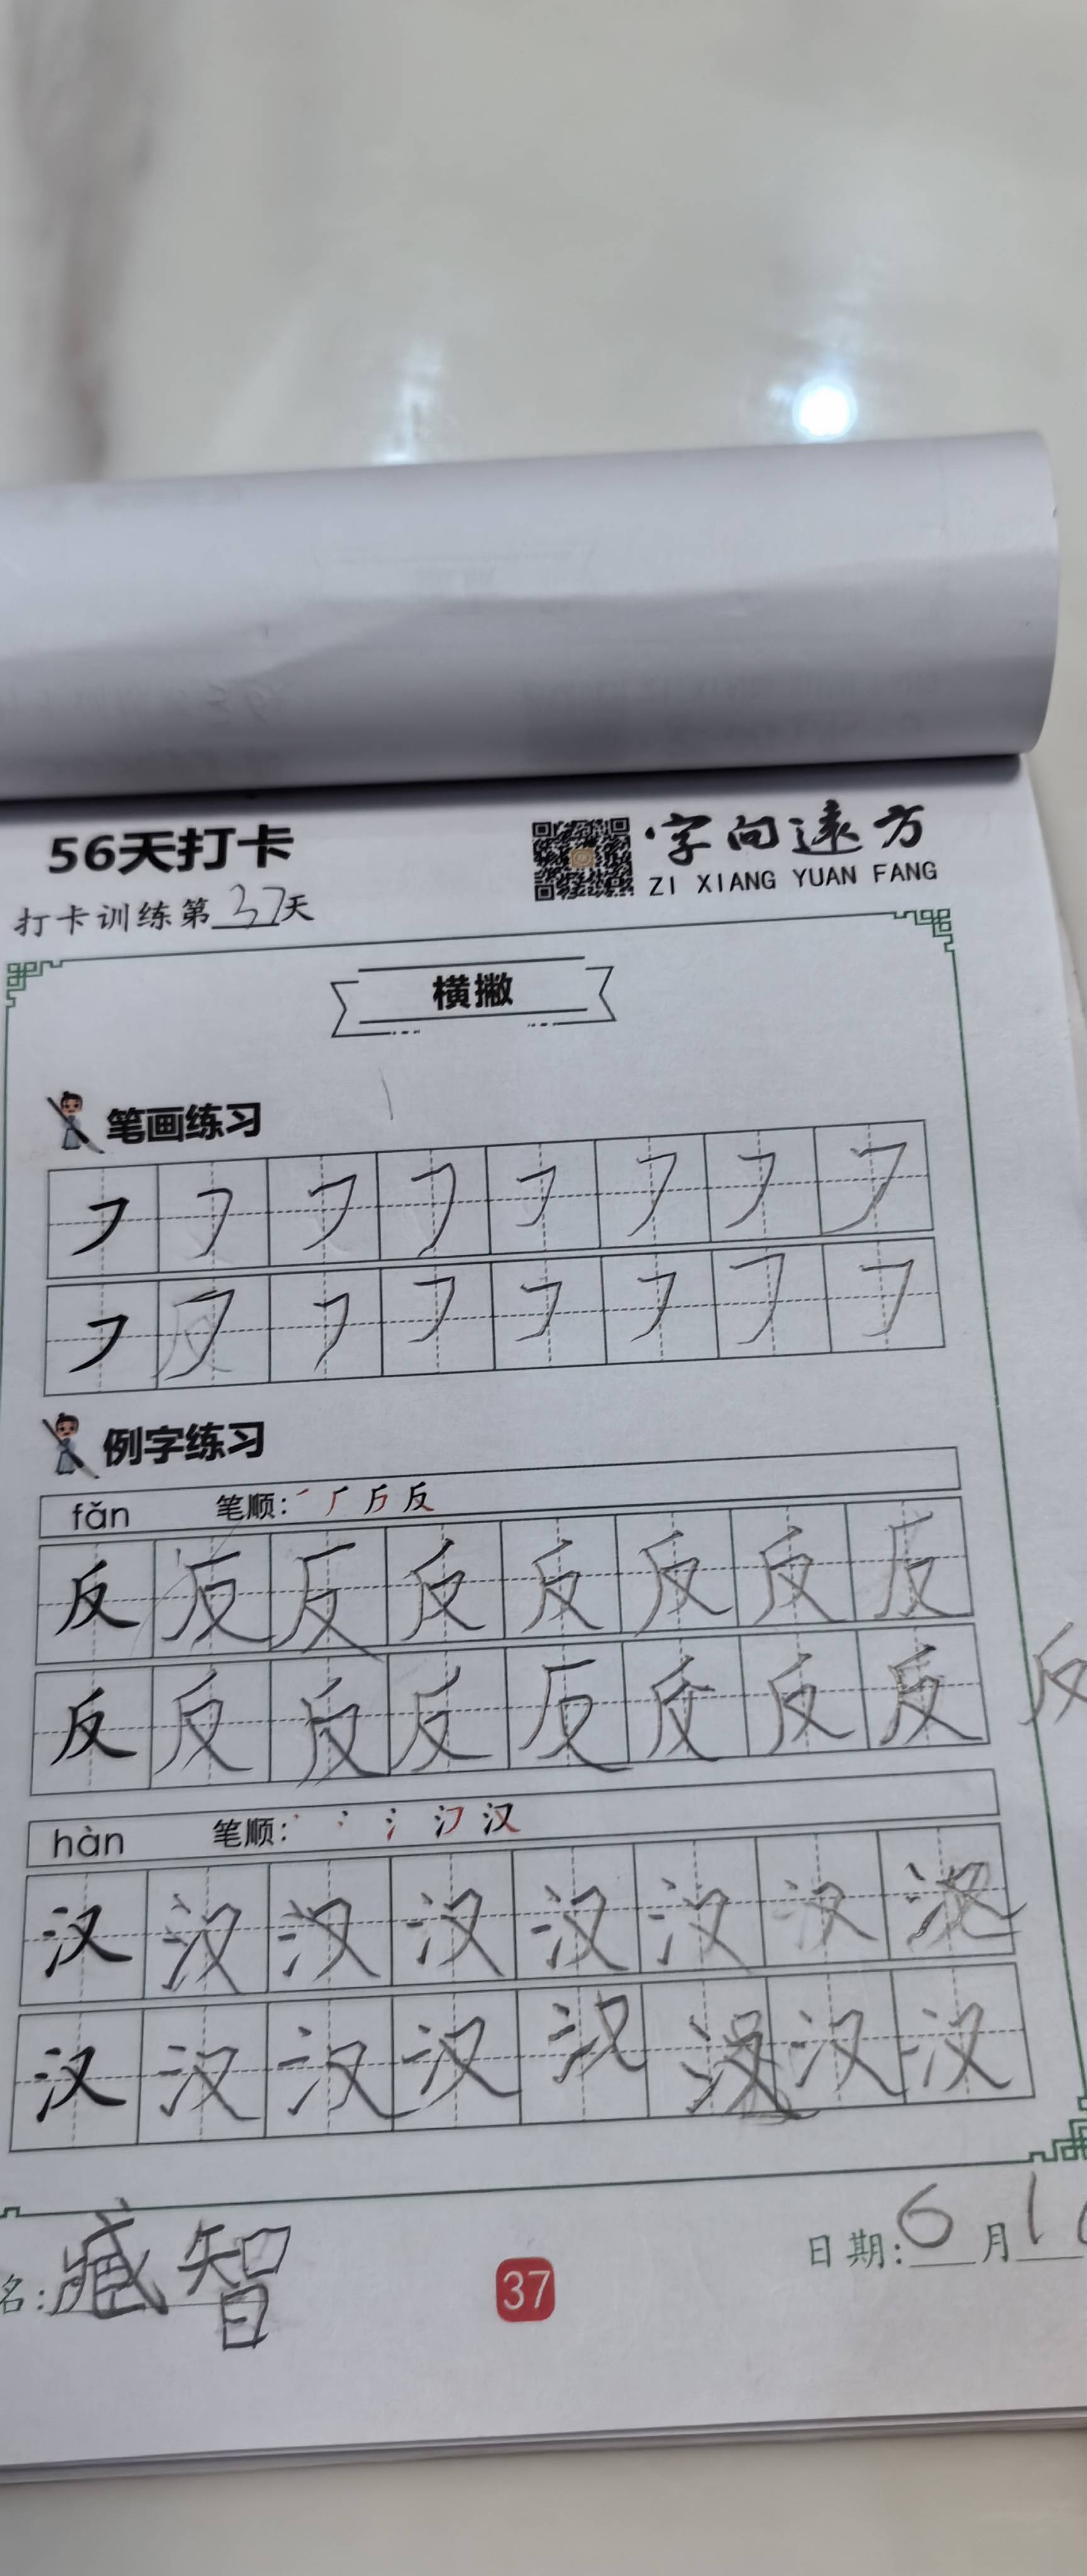 56天打卡
字向远方
ZI XIANG YUAN FANG
打卡训练第37天
横撇
笔画练习
㇇ ㇇ ㇇ ㇇ ㇇ ㇇ ㇇ ㇇
㇇ ㇇ ㇇ ㇇ ㇇ ㇇ ㇇ ㇇
例字练习
fǎn 笔顺: 反
反 反 反 反 反 反 反 反
反 反 反 反 反 反 反 反 反
hàn 笔顺: 汉
汉 汉 汉 汉 汉 汉 汉 汉
汉 汉 汉 汉 汉 汉 汉 汉
名: 臧智
日期: 6月1
37